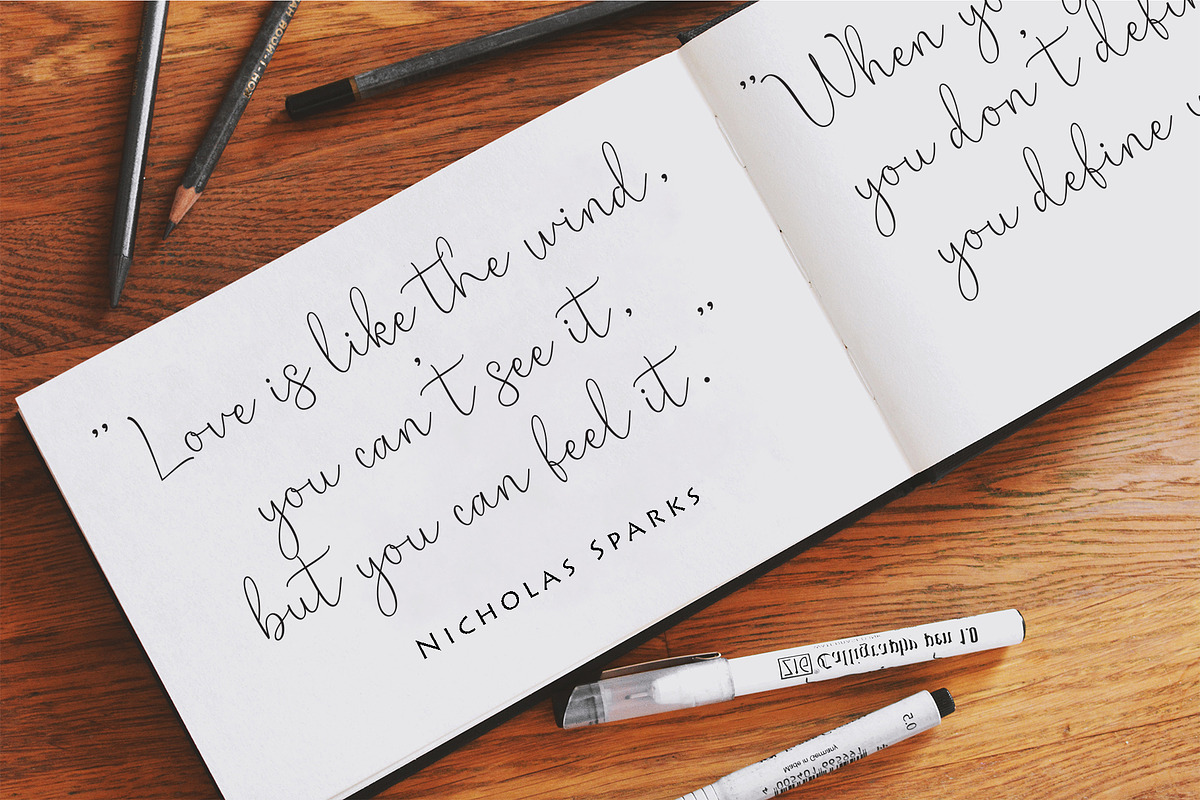 ” Love is like the wind,
you can't see it,
but you can feel it. ”
NICHOLAS SPARKS
” When yo
you don't defin
you define
KOH-I-NOOR HA
ZIG Calligraphy pen 1.0
Made in Germany